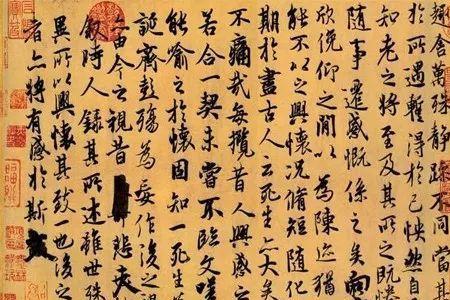 趣舍萬殊靜躁不同當其
於所遇暫得於己怏然自
知老之將至及其所之既惓
隨事遷感慨係之矣向
欣俛仰之間以為陳迹猶
能不以之興懷況脩短隨化
期於盡古人云死生亦大矣
不痛哉每攬昔人興感之
若合一契未嘗不臨文嗟
能喻之於懷固知一死生
誕齊彭殤為妄作後之視
亦由今之視昔悲夫
敘時人錄其所述雖世殊
異所以興懷其致一也後之
者亦將有感於斯文